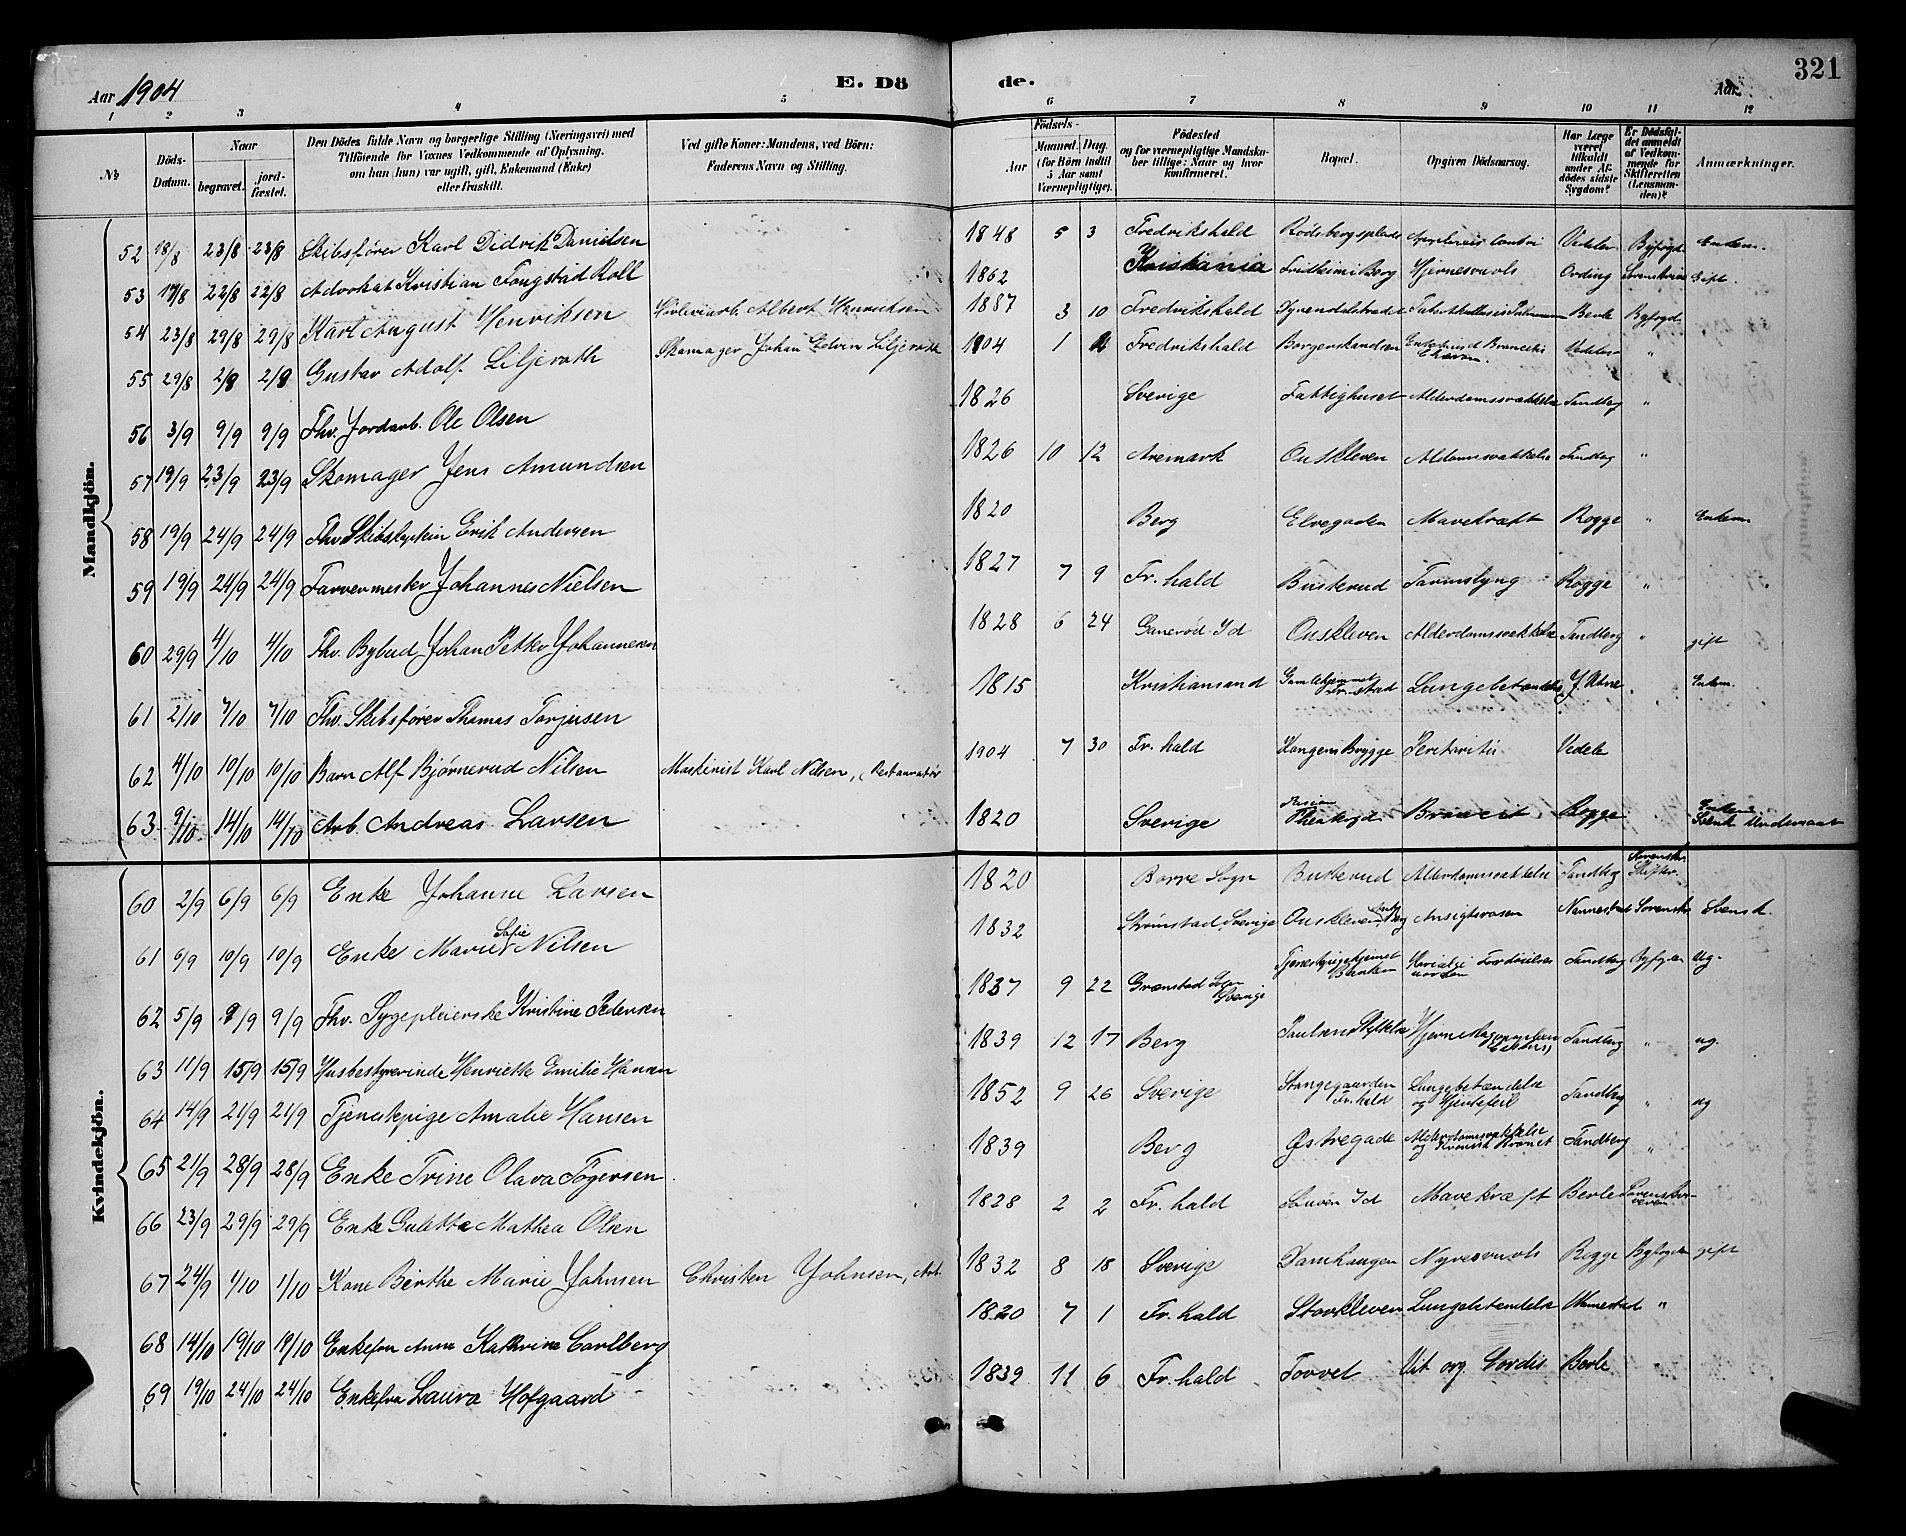 Aar 1904
E. Dö de.
Aar
321
1 2 3 4 5 6 7 8 9 10 11 12
No
Döds-Datum.
Naar
begravet.
jordfæstet.
Den Dödes fulde Navn og borgerlige Stilling (Næringsvei) med
Tilföiende for Voxnes Vedkommende af Oplysning,
om han (hun) var ugift, gift, Enkemand (Enke)
eller fraskilt.
Ved gifte Koner: Mandens, ved Börn:
Faderens Navn og Stilling.
Födsels-
Aar
Maaned. Dag.
(for Börn indtil 5 Aar samt Værnepligtige).
Födested
og for værnepligtige Mandskaber tillige: Naar og hvor konfirmeret.
Bopæl.
Opgiven Dödsaarsag.
Har Læge været tilkaldt under Afdödes sidste Sygdom?
Er Dödsfaldet anmeldt af Vedkommende for Skifteretten (Lensmanden)?
Anmærkninger.
Mandkjön.
52 18/8 23/8 23/8 Skibsfører Karl Didrik Danielsen 1848 5 3 Fredrikshald Rødsbergsplads Vedeler Byfogd Enkem.
53 17/8 22/8 22/8 Advokat Kristian Fougstad Roll 1862 Kristiania Berg Gift.
54 23/8 29/8 29/8 Karl August Henriksen Albert Henriksen 1887 3 10 Fredrikshald Berle Byfogd
55 29/8 2/9 2/9 Gustav Adolf Liljeroth Skomager Johan Edvin Liljeroth 1904 1 2 Fredrikshald Vedeler "
56 3/9 9/9 9/9 Fhv. Jordarb. Ole Olsen 1826 Sverige Fattighuset Alderdomssvækkelse Tandberg "
57 19/9 23/9 23/9 Skomager Jens Amundsen 1826 10 12 Aremark Ouskleven Tandbg "
58 19/9 24/9 24/9 Fhv Skibskaptein Erik Andersen 1820 Berg Elvegaden Mavekræft Rogge " Enkem
59 19/9 24/9 24/9 Farvermester Johannes Nielsen 1827 7 9 Fr. hald Busterud Tarmslyng Rogge "
60 29/9 4/10 4/10 Fhv. Bybud Johan Petter Johannesen 1828 6 24 Id Ouskleven Alderdomssvækkelse Tandberg " gift
61 2/10 7/10 7/10 Fhv. Skibsfører Thomas Torjusen 1815 Kristiansand Gamlehjemmet Fr. stad Lungebetændelse Enkem.
62 4/10 10/10 10/10 Barn Alf Bjørnerud Nilsen Maskinist Karl Nilsen, 1904 7 30 Fr. hald Brygge Vedele
63 9/10 14/10 14/10 Arb. Andreas Larsen 1820 Sverige Rogge Enkem Svensk Undersaat
Kvindekjön.
60 2/9 6/9 6/9 Enke Johanne Larsen 1820 Borre Sogn Busterud Tandberg
61 6/9 10/9 10/9 Enke Marie Sofie Nilsen 1832 Strømstad Sverige Ouskleven Ansigtsrosen Nannestad Svensk.
62 5/9 9/9 9/9 Fhv. Sygepleierske Kristine Pedersen 1837 9 22 Sverige Tandberg Byfogden ug.
63 11/9 15/9 15/9 Husbestyrerinde Henriette Emilie Hansen 1839 12 17 Berg Tandberg " ug.
64 14/9 21/9 21/9 Tjenestepige Amalie Hansen 1852 9 26 Sverige Stangegaarden Fr. hald Lungebetændelse og Hjertefeil Tandberg " ug
65 21/9 28/9 28/9 Enke Trine Olava Tøgersen 1839 Berg Østregade Alderdomssvækkelse og Tandberg "
66 23/9 29/9 29/9 Enke Guletta Mathea Olsen 1828 2 2 Fr. hald Id Mavekræft Berle
67 24/9 1/10 1/10 Kone Birthe Marie Johnsen Christen Johnsen, Arb. 1832 8 18 Sverige Damhaugen Rogge Byfogden gift
68 14/10 19/10 19/10 Enkefru Anna Kathrine Carlberg 1820 7 1 Fr. hald Storkleven Lungebetændelse "
69 19/10 24/10 24/10 Enkefru Laura Hofgaard 1839 11 6 Fr. hald Torvet Vit. org. Cordis Berle "